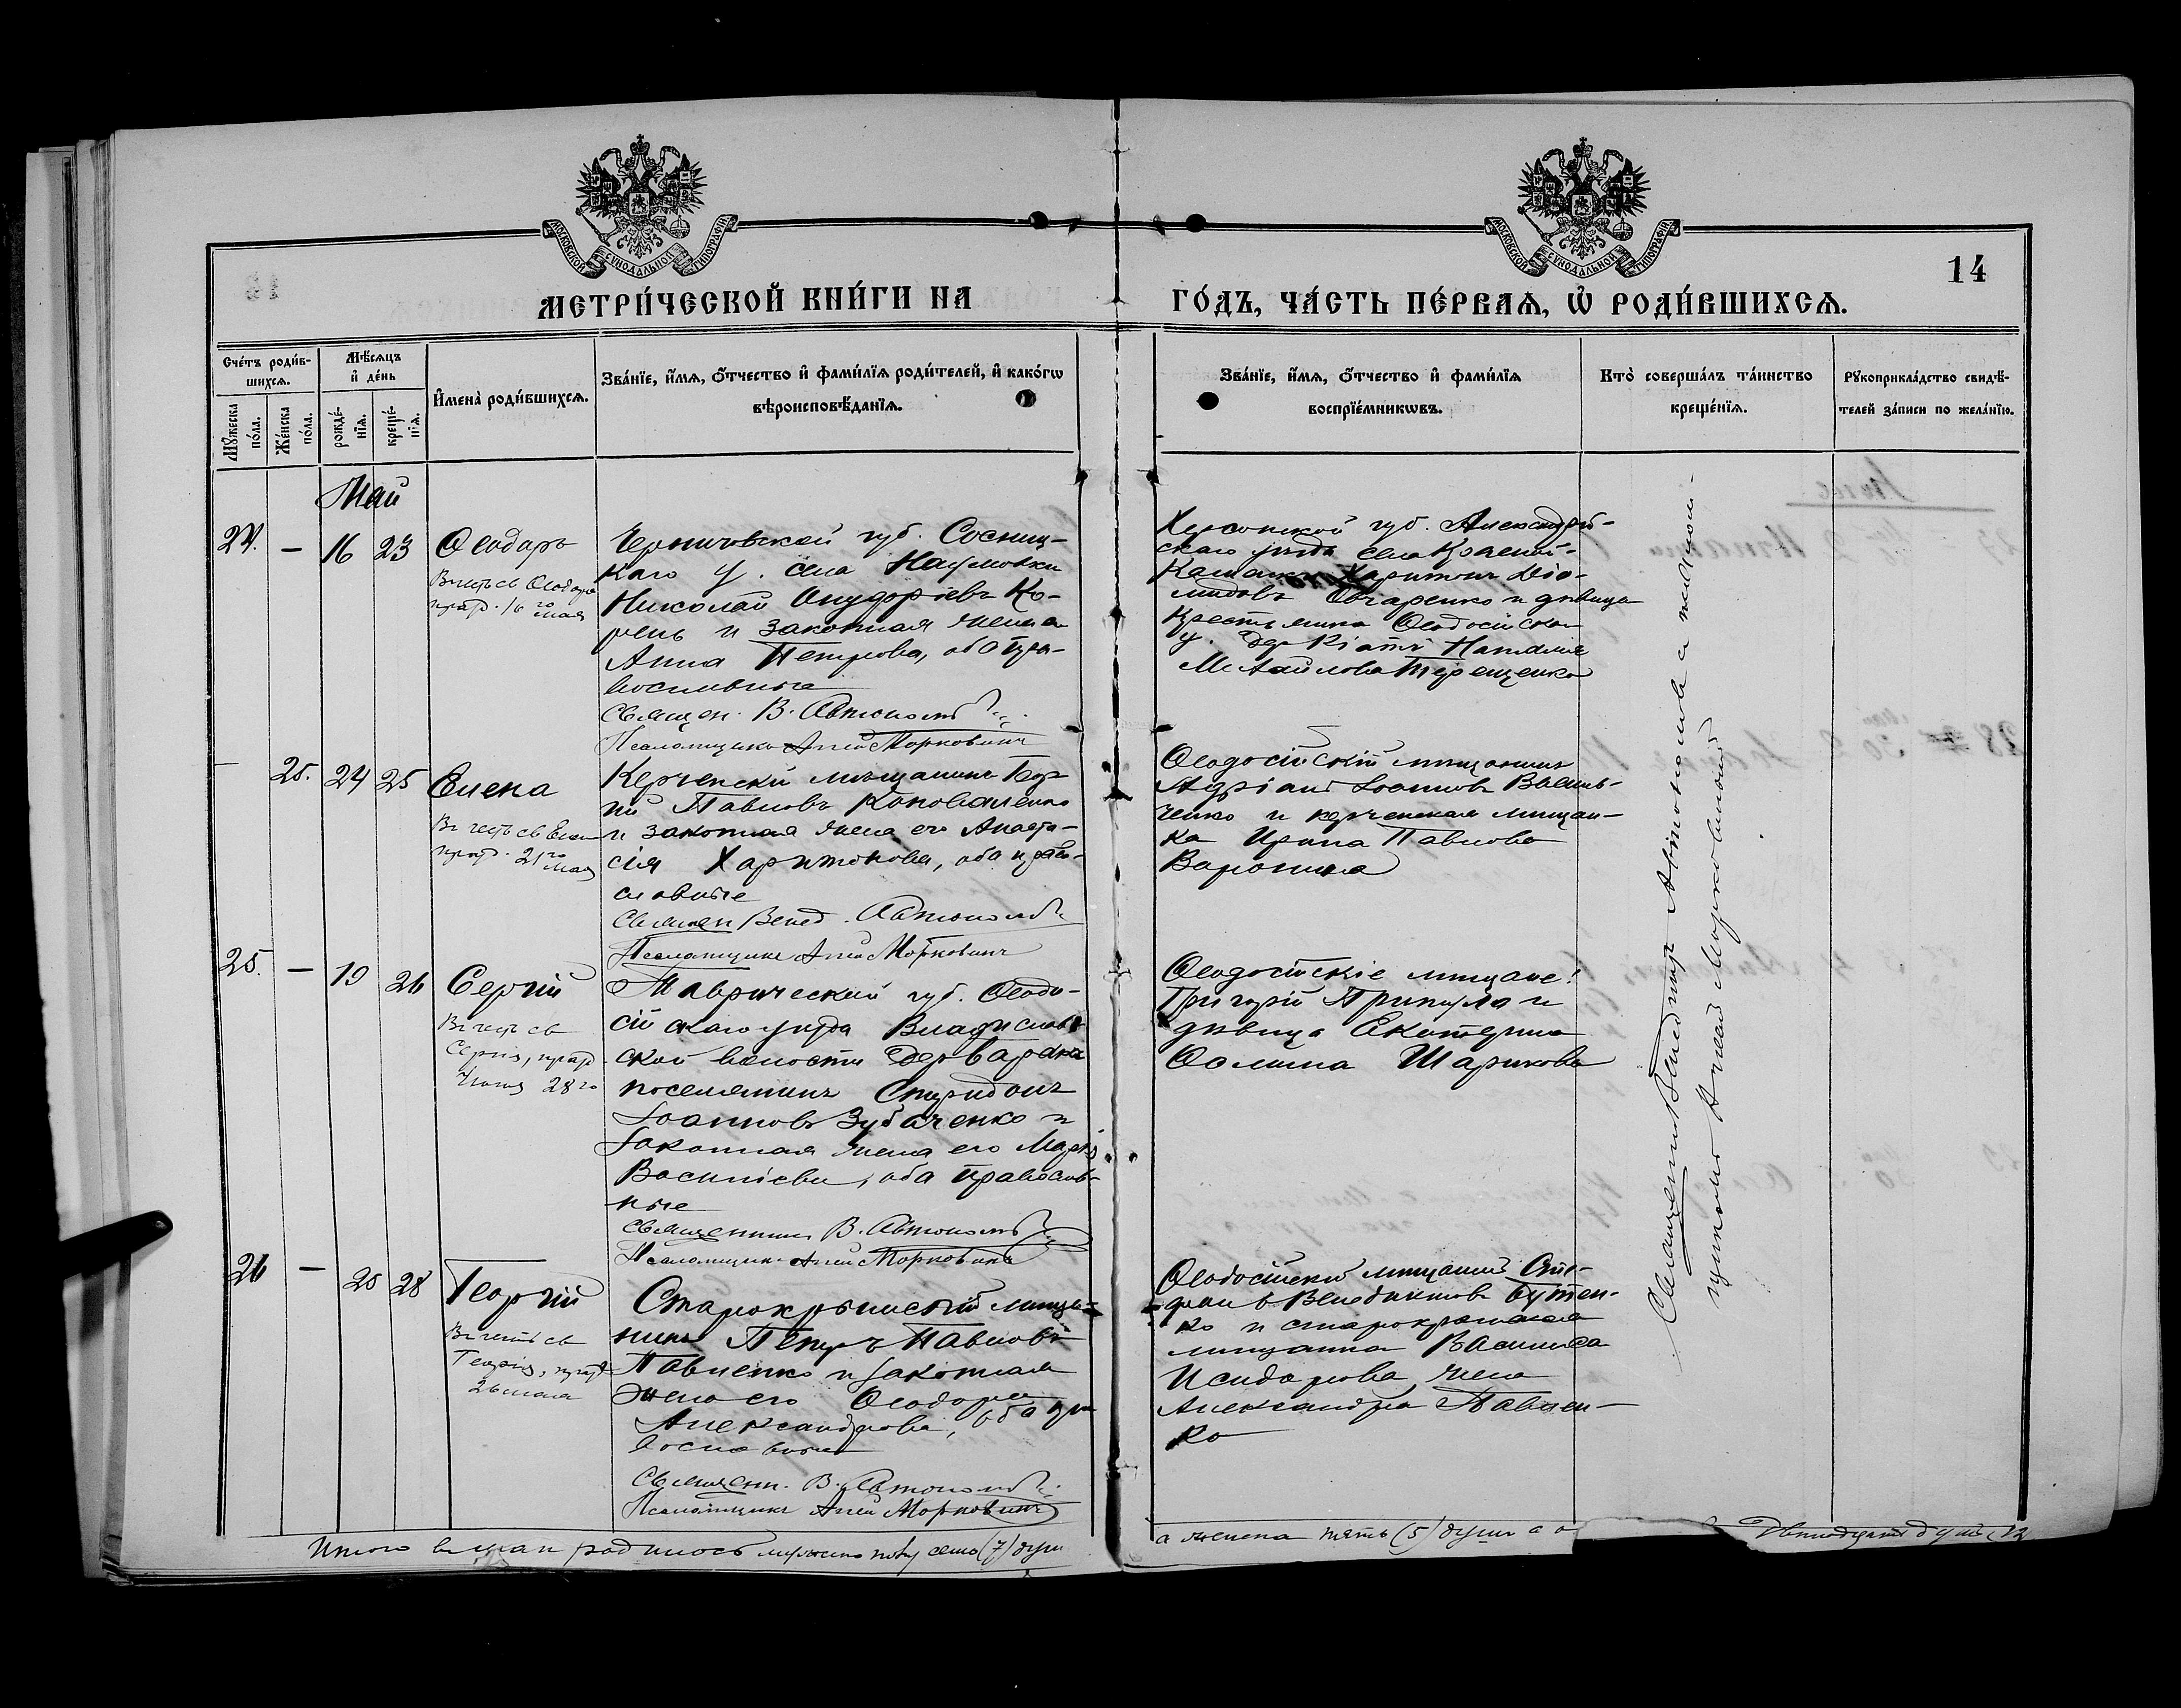 МОСКОВСКОЙ СѴНОДАЛЬНОЙ ТИПОГРАФІИ
МОСКОВСКОЙ СѴНОДАЛЬНОЙ ТИПОГРАФІИ
14
МЕТРИ́ЧЕСКОЙ КНИ́ГИ НА
ГО́ДЪ, ЧА́СТЬ ПЕ́РВАѦ, Ѽ РОДИ́ВШИХСѦ.
Сче́тъ роди́в-
шихсѧ.
Мꙋ́жеска по́ла.
Же́нска по́ла.
Мѣ́сѧцъ
и҆ де́нь
рожде́-
нїѧ.
креще́-
нїѧ.
И҆мена̀ роди́вшихсѧ.
Зва́нїе, и҆́мѧ, ѻ҆́тчество и҆ фами́лїѧ роди́телей, и҆ како́гѡ
вѣроисповѣ́данїѧ.
Зва́нїе, и҆́мѧ, ѻ҆́тчество и҆ фами́лїѧ
воспрїе́мникѡвъ.
Кто̀ соверша́лъ та́инство
креще́нїѧ.
Рꙋкоприкла́дство свидѣ́-
телей за́писи по жела́нїю.
Май
24. — 16 23
Ѳеодоръ
Въ честь св Ѳеодора
празд. 16го мая
Черниговской губ. Сосниц-
каго у. села Наумовки
Николай Онуфріевъ Ко-
рень и законная жена
Анна Петрова, оба пра-
вославные
Священ. В. Автономовъ
Псаломщикъ Агей Морковинъ
Херсонской губ. Александрій-
скаго уѣзда села Красной-
Каменки Харитонъ Дio-
мидовъ Овчаренко и дѣвица
крестьянка Ѳеодосійскаго
у. дер Кіятъ Наталія
Михайлова Терещенко
— 25. 24 25
Елена
Въ честь св Елены
празд. 21го мая
Керченскій мѣщанинъ Геор-
гій Павловъ Коноваленко
и законная жена его Анаста-
сія Харитонова, оба право-
славные
Священ Венед. Автономовъ
Псаломщикъ Агей Морковинъ
Ѳеодосійскій мѣщанинъ
Адріанъ Іоанновъ Василь-
ченко и керченская мѣщан-
ка Ирина Павлова
Воронина
25. — 19 26
Сергій
Въ честь св
Сергія, празд
Іюня 28го
Таврической губ. Ѳеодо-
сійскаго уѣзда Владислав-
ской волости дер
поселянинъ Спиридонъ
Іоанновъ Зубаченко и
законная жена его Марія
Васильева, оба православ-
ные
Священникъ В. Автономовъ
Псаломщикъ Агей Морковинъ
Ѳеодосійскіе мѣщане:
Григорій Припула и
дѣвица Екатерина
Ѳомина Шарикова
26 — 25 28
Георгій
Въ честь св
Георгія, празд
26 мая
Старокрымскій мѣща-
нинъ Петръ Павловъ
Павленко и законная
жена его Ѳеодора
Александрова, оба пра
вославные
Священ. В. Автономовъ
Псаломщикъ Агей Морковинъ
Ѳеодосійскій мѣщанинъ Сте-
фанъ Венедиктовъ Бутен-
ко и старокрымская
мѣщанка Василиса
Исидорова, жена
Александра Павлен-
ко
Священникъ Венедиктъ Автономовъ а псалом-
щикомъ Агеемъ Морковинымъ
Итого въ маѣ родилось мужеска полу семь (7) душ
а женска пять (5) душъ а о
двѣнадцать душъ (12